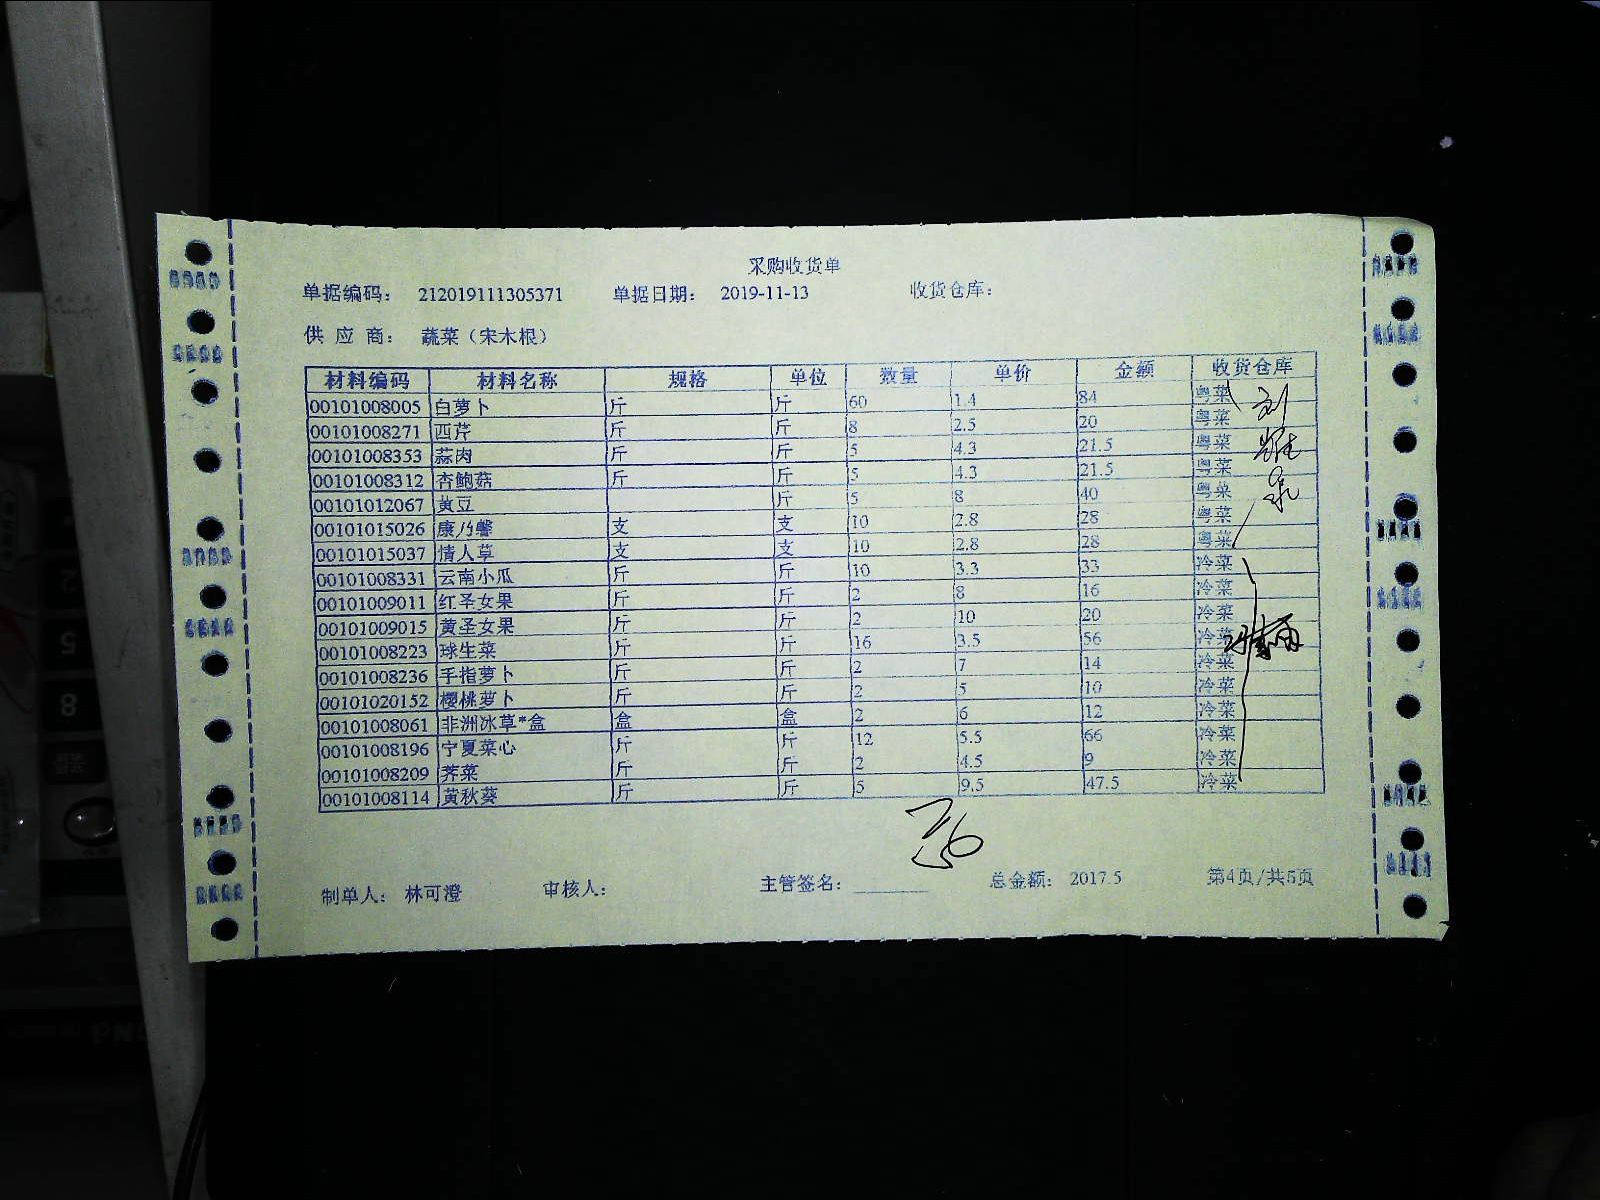 采购收货单
单据编码： 212019111305371 单据日期： 2019-11-13 收货仓库：
供 应 商： 蔬菜（宋木根）
材料编码 材料名称 规格 单位 数量 单价 金额 收货仓库
00101008005 白萝卜 斤 斤 60 1.4 84 粤菜
00101008271 西芹 斤 斤 8 2.5 20 粤菜
00101008353 蒜肉 斤 斤 5 4.3 21.5 粤菜
00101008312 杏鲍菇 斤 斤 5 4.3 21.5 粤菜
00101012067 黄豆 斤 5 8 40 粤菜
00101015026 康乃馨 支 支 10 2.8 28 粤菜
00101015037 情人草 支 支 10 2.8 28 粤菜
00101008331 云南小瓜 斤 斤 10 3.3 33 冷菜
00101009011 红圣女果 斤 斤 2 8 16 冷菜
00101009015 黄圣女果 斤 斤 2 10 20 冷菜
00101008223 球生菜 斤 斤 16 3.5 56 冷菜
00101008236 手指萝卜 斤 斤 2 7 14 冷菜
00101020152 樱桃萝卜 斤 斤 2 5 10 冷菜
00101008061 非洲冰草*盒 盒 盒 2 6 12 冷菜
00101008196 宁夏菜心 斤 斤 12 5.5 66 冷菜
00101008209 荠菜 斤 斤 2 4.5 9 冷菜
00101008114 黄秋葵 斤 斤 5 9.5 47.5 冷菜
制单人： 林可澄 审核人： 主管签名： 总金额： 2017.5 第4页/共5页
5
8